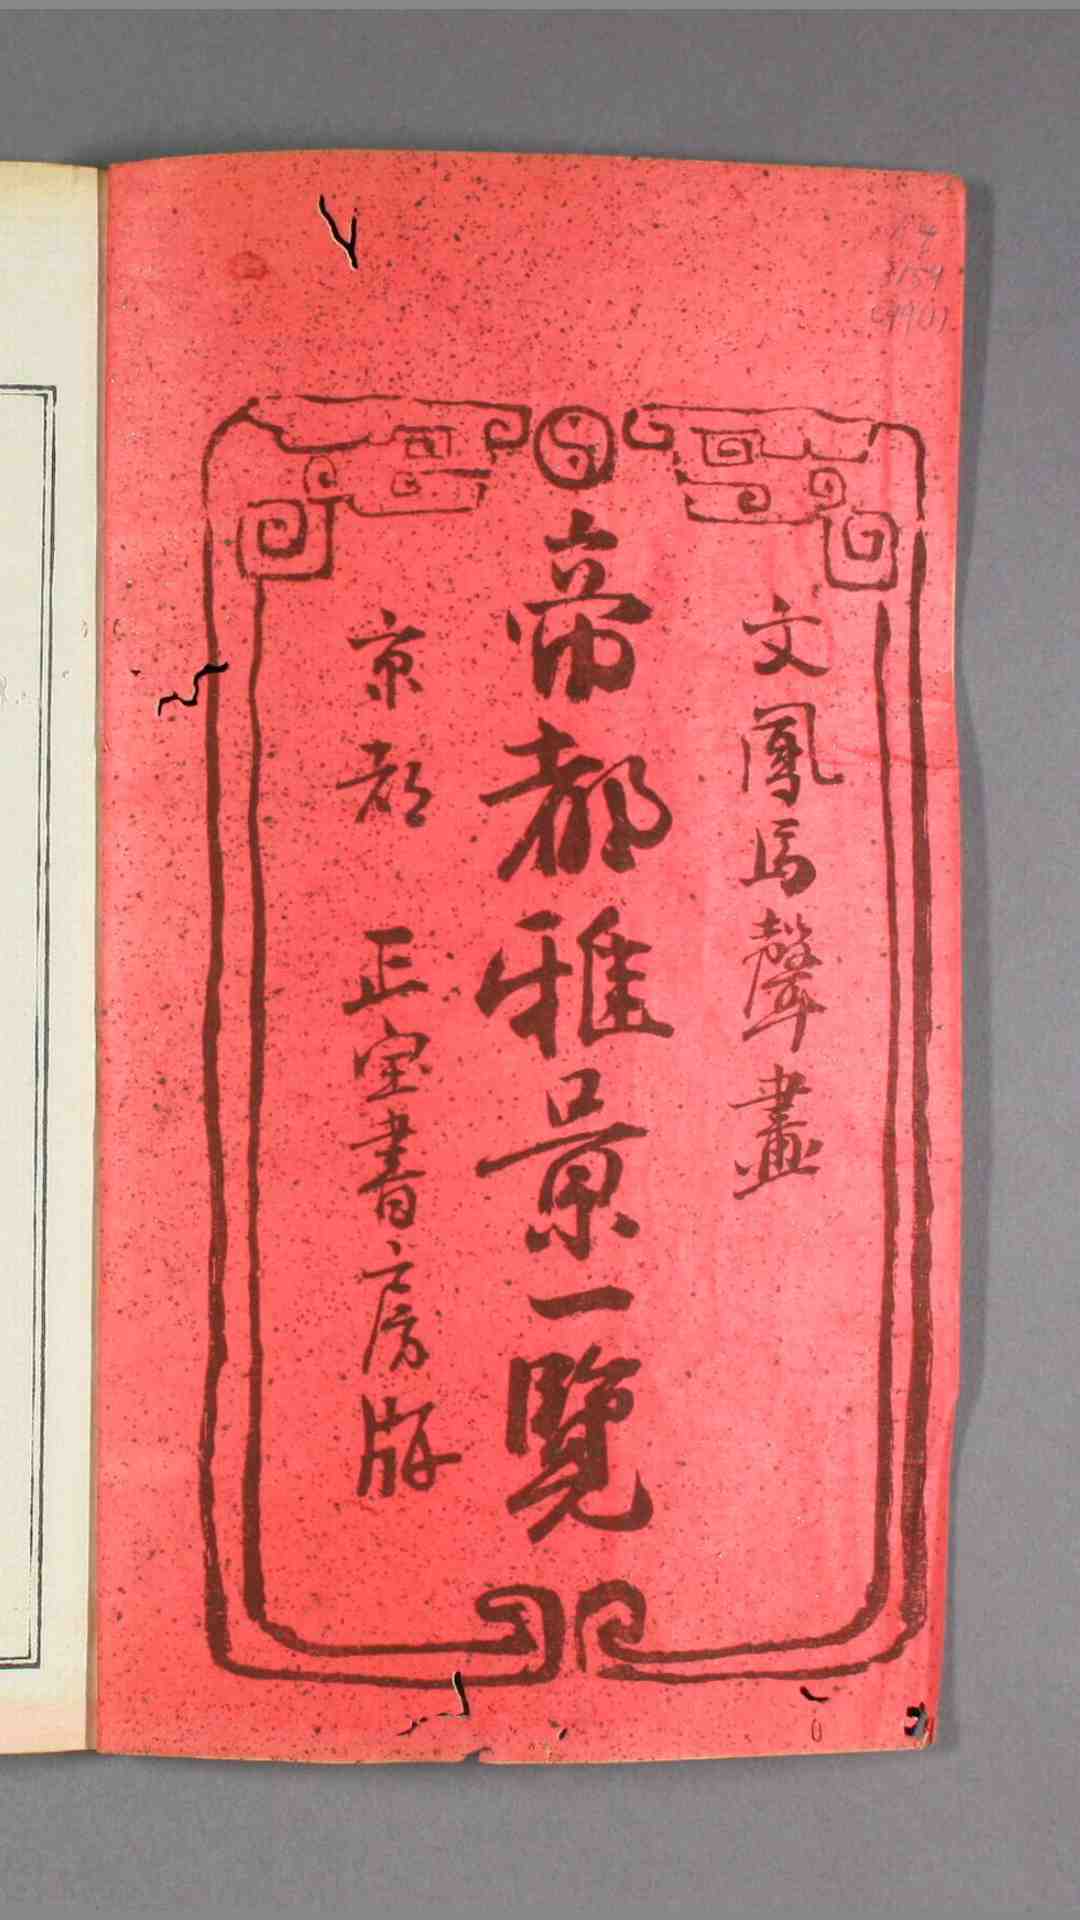 文鳳馬聲畫
帝都雅景一覽
京都 正宝書房版